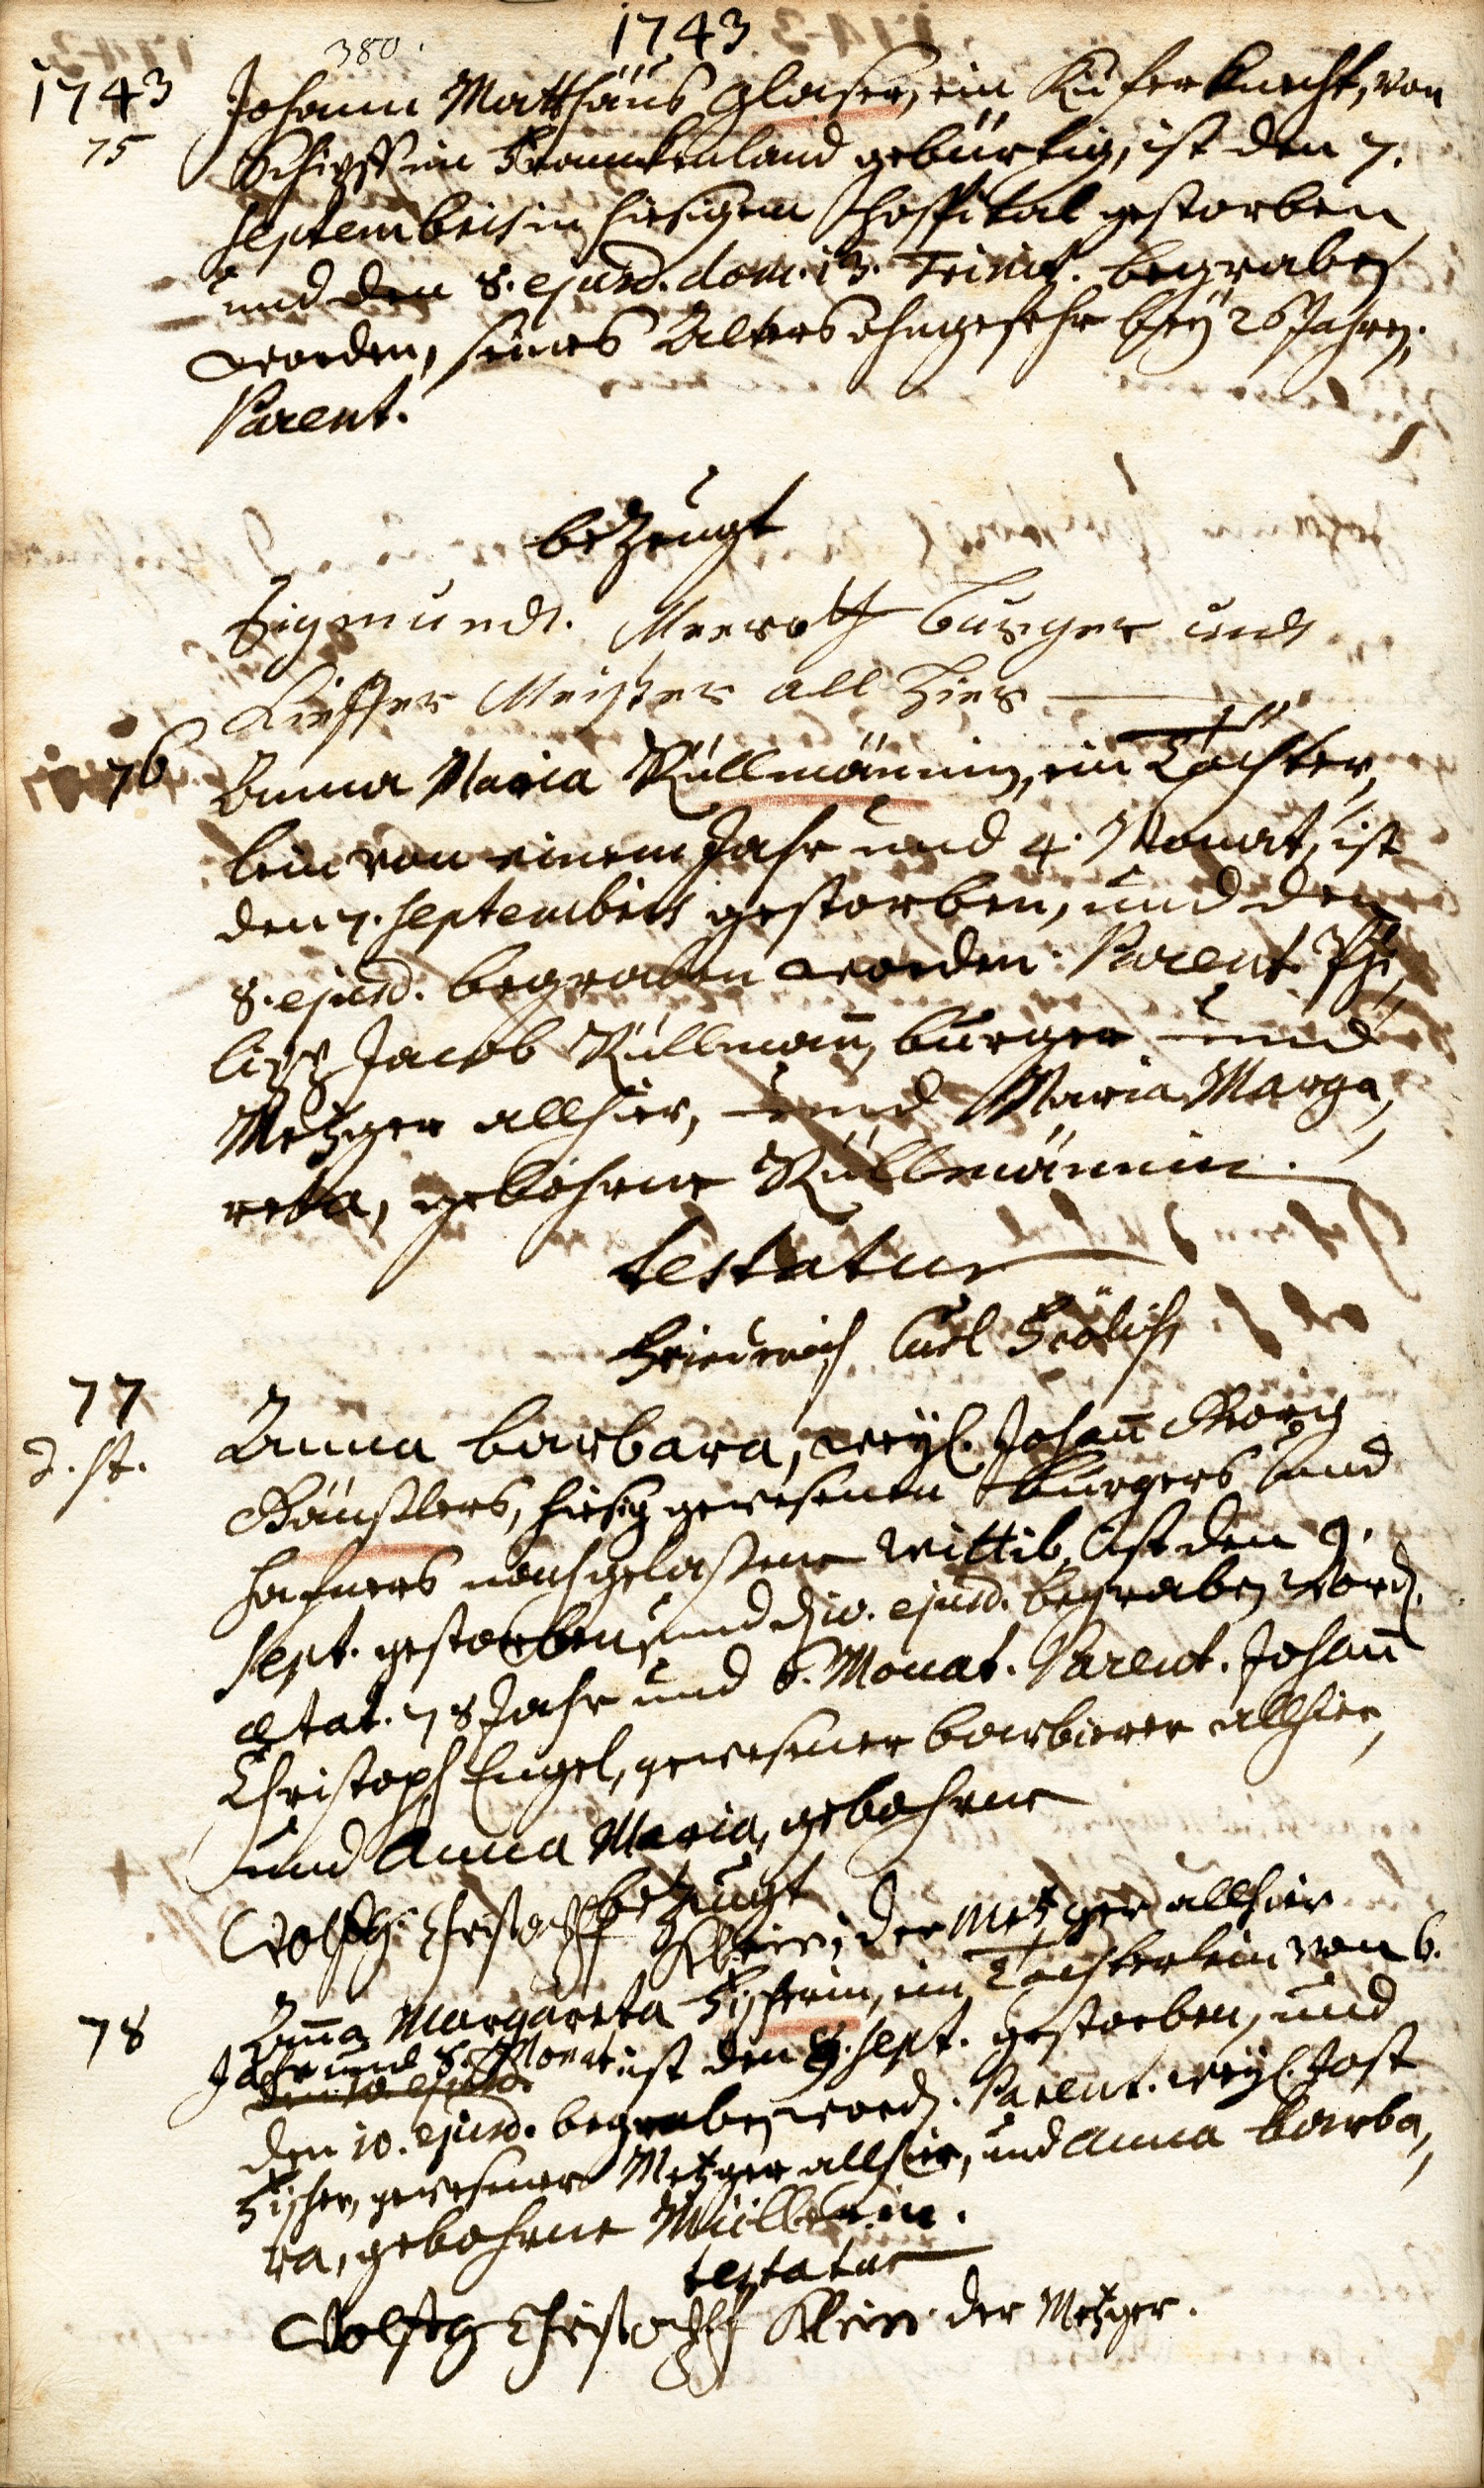 1743
380.
1743
75
Johann Matthäus Glaser, ein Kuferknecht, von
Schipff im Franckenland gebürtig, ist den 7.
Septembris in hiesigem Hospital gestorben
und den 8. ejusd. dom. 13. Trinit. begraben
worden, seines Alters ohngefehr bey 26 Jahren.
Parent.
bezeugt
Sigmundt. burger und
Kieffer Meister all hier
76
Anna Maria Rüllmännin, ein Töchter,
lein von einem Jahr und 4. Monat, ist
den 7. Septembris gestorben, und den
8. ejusd. begraben worden. Parent. Phi,
lipp Jacob Rüllmañ, burger und
Metzger allhier, und Maria Marga,
reta, gebohrne Rüllmännin.
testatur
Friedrich Carl Frölich
77
d. st.
Anna Barbara, weyl. Johañ Georg
Gänßlers, hiesig gewesenen Burgers und
Hafners nachgelaßene Wittib, ist den 9.
Sept. gestorben, und d. 10. ejusd. begraben word.
ætat. 78 Jahr und 6. Monat. Parent. Johañ
Christoph Engel, gewesener barbierer allhier,
und Anna Maria, gebohrne
bezeugt
Wolffg. Christoff Klein, der Metzger allhier
78
Aña Margareta Fischerin, ein Töchterlein von 6.
Jahr und 8. Monat ist den 9. Sept. gestorben, und
den 10. ejusd.
den 10. ejusd. begraben word. Parent. weyl. Jost
Fischer, gewesener Metzger allhier, und Anna Barba,
ra, gebohrne Müllerin.
testatur
Wolffg Christoff Klein der Metzger.